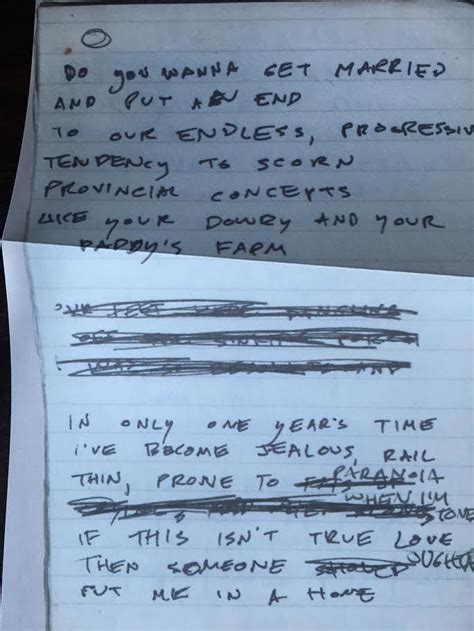 DO YOU WANNA GET MARRIED
AND PUT AN END
TO OUR ENDLESS, PROGRESSIV
TENDENCY TO SCORN
PROVINCIAL CONCEPTS
LIKE YOUR DOWRY AND YOUR
DADDY'S FARM
IN ONLY ONE YEAR'S TIME
I'VE BECOME JEALOUS, RAIL
THIN, PRONE TO PARANOIA
WHEN I'M
STONE
IF THIS ISN'T TRUE LOVE
THEN SOMEONE OUGHTA
PUT ME IN A HOME